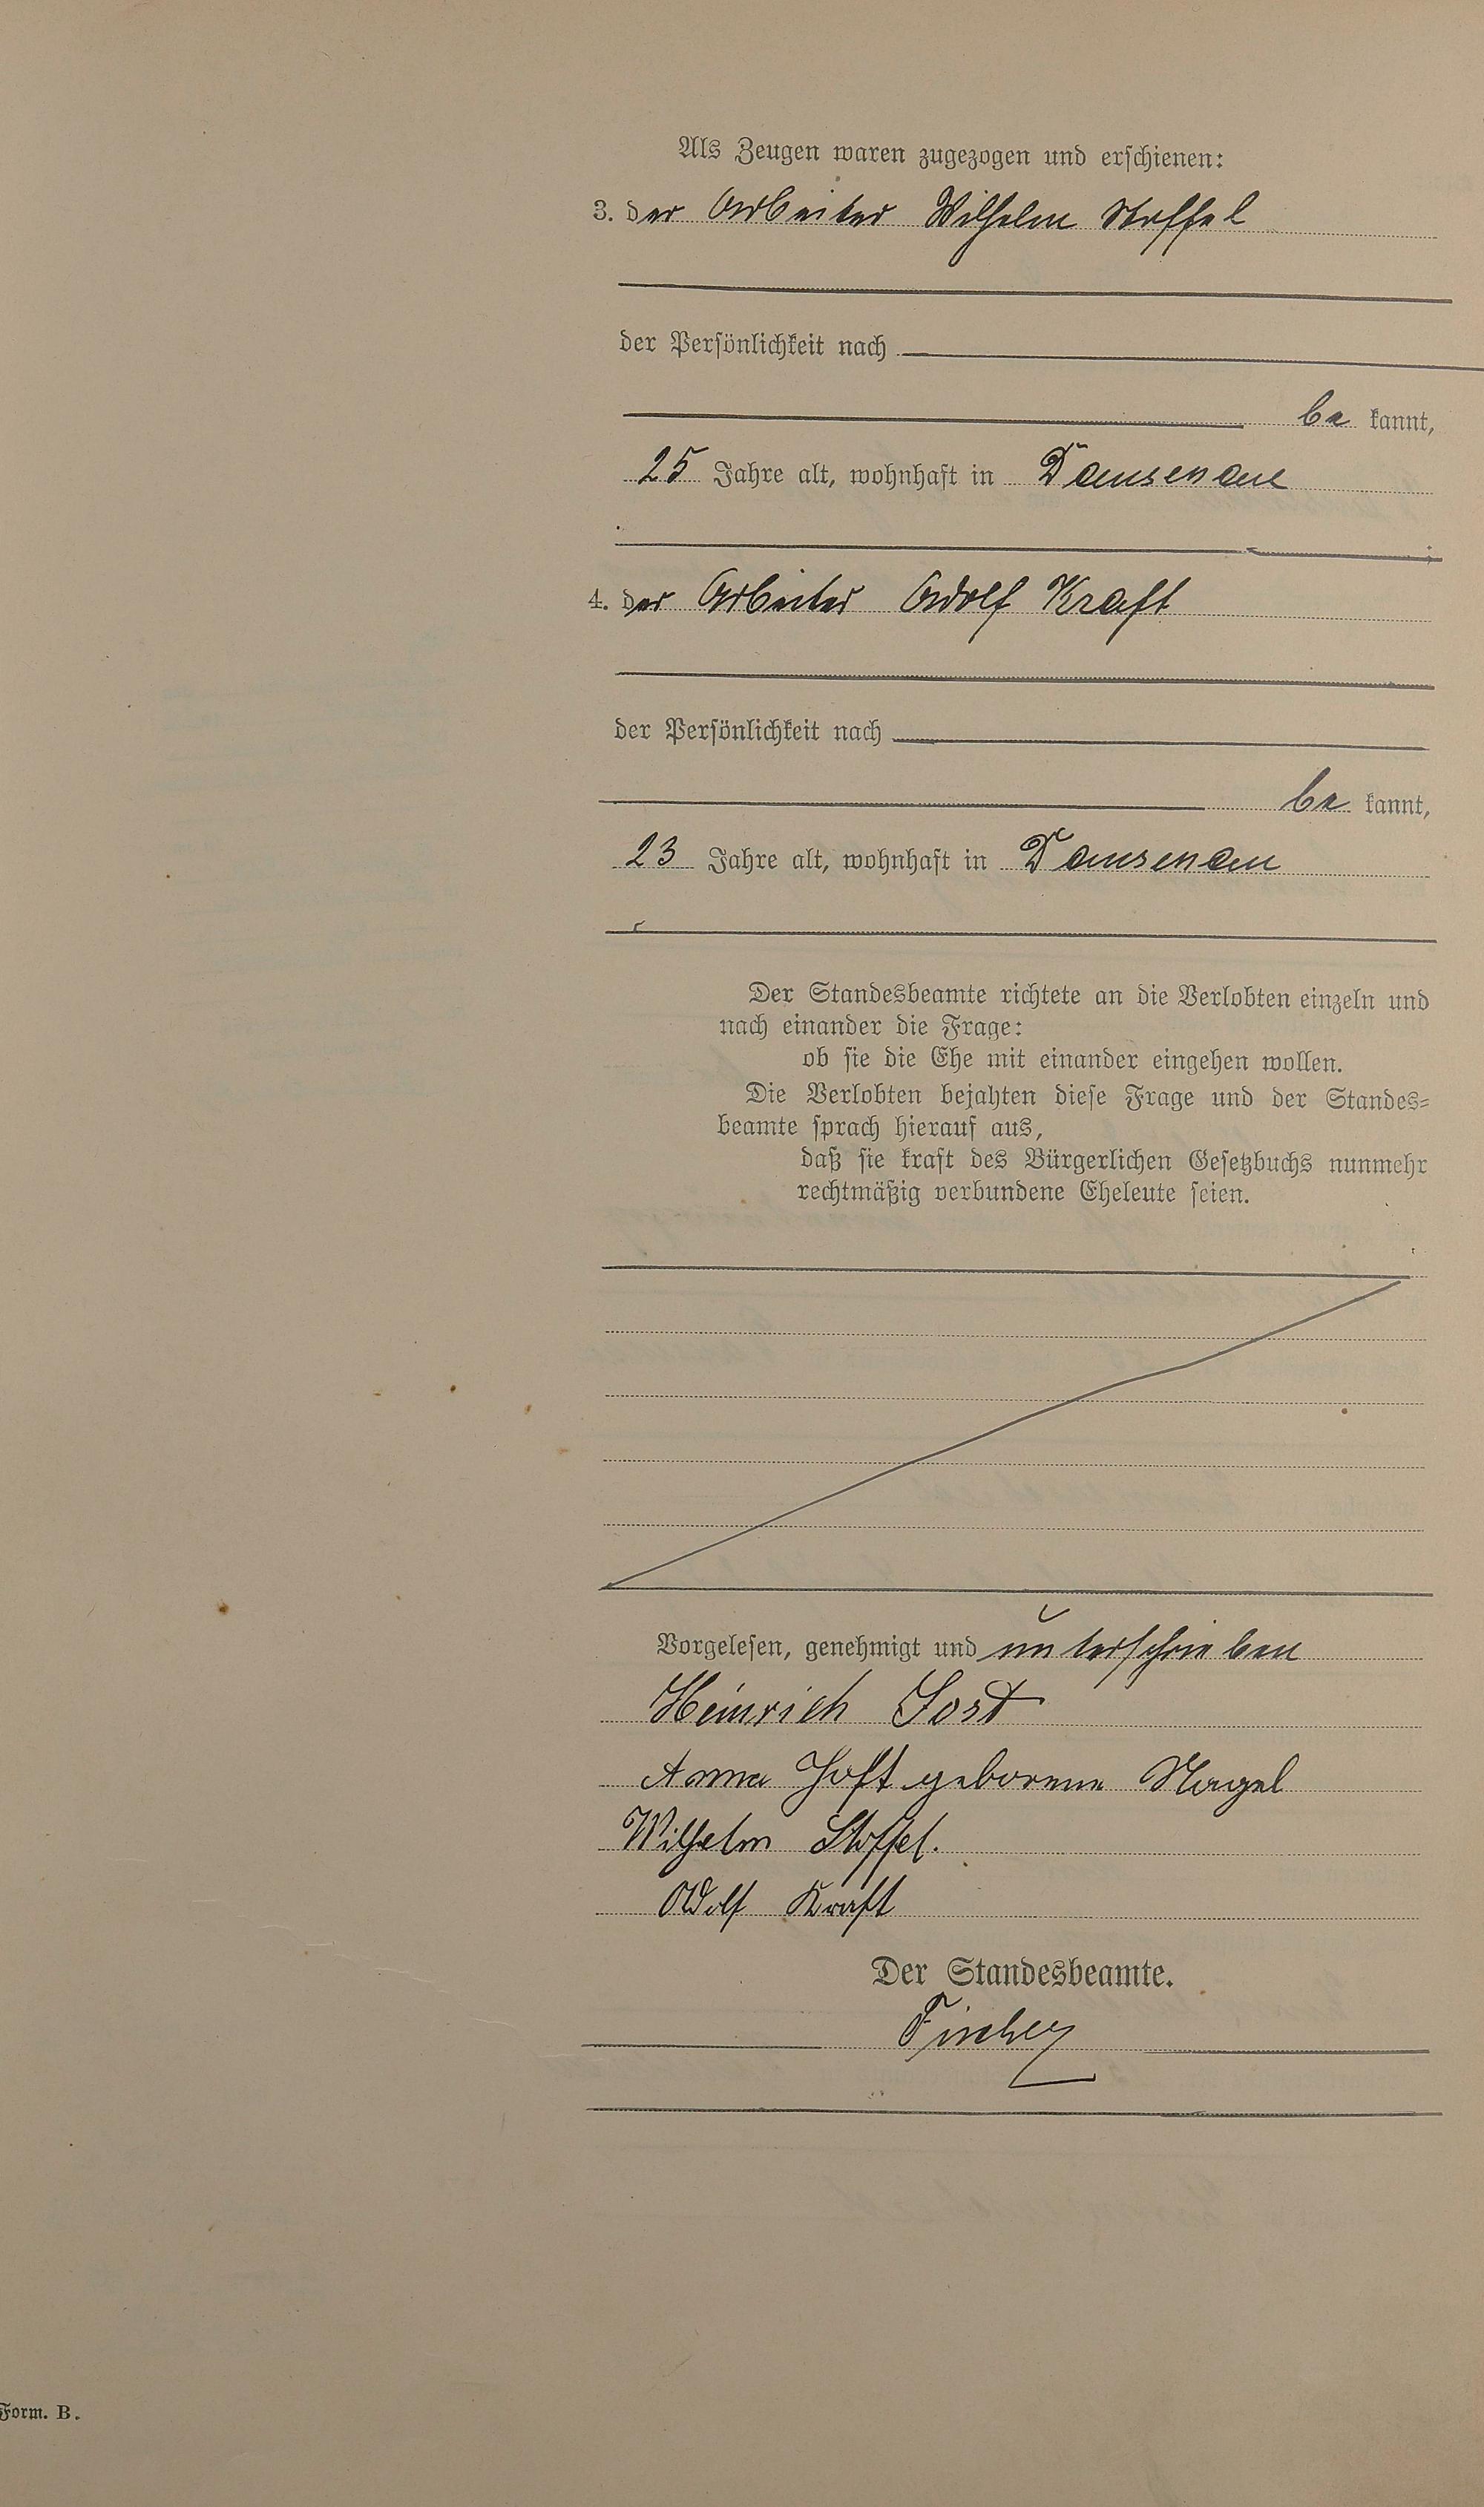 Als Zeugen waren zugezogen und erschienen:
3. der Arbeiter Wilhelm Stoffel
der Persönlichkeit nach
be kannt,
25 Jahre alt, wohnhaft in Dausenau
;
4. der Arbeiter Adolf Kraft
der Persönlichkeit nach
be kannt,
23 Jahre alt, wohnhaft in Dausenau
Der Standesbeamte richtete an die Verlobten einzeln und
nach einander die Frage:
ob sie die Ehe mit einander eingehen wollen.
Die Verlobten bejahten diese Frage und der Standes-
beamte sprach hierauf aus,
daß sie kraft des Bürgerlichen Gesetzbuchs nunmehr
rechtmäßig verbundene Eheleute seien.
Vorgelesen, genehmigt und unterschrieben
Heinrich Jost
Anna Jost geborene Nagel
Wilhelm Stoffel.
Adolf Kraft
Der Standesbeamte.
Fischer
Form. B.